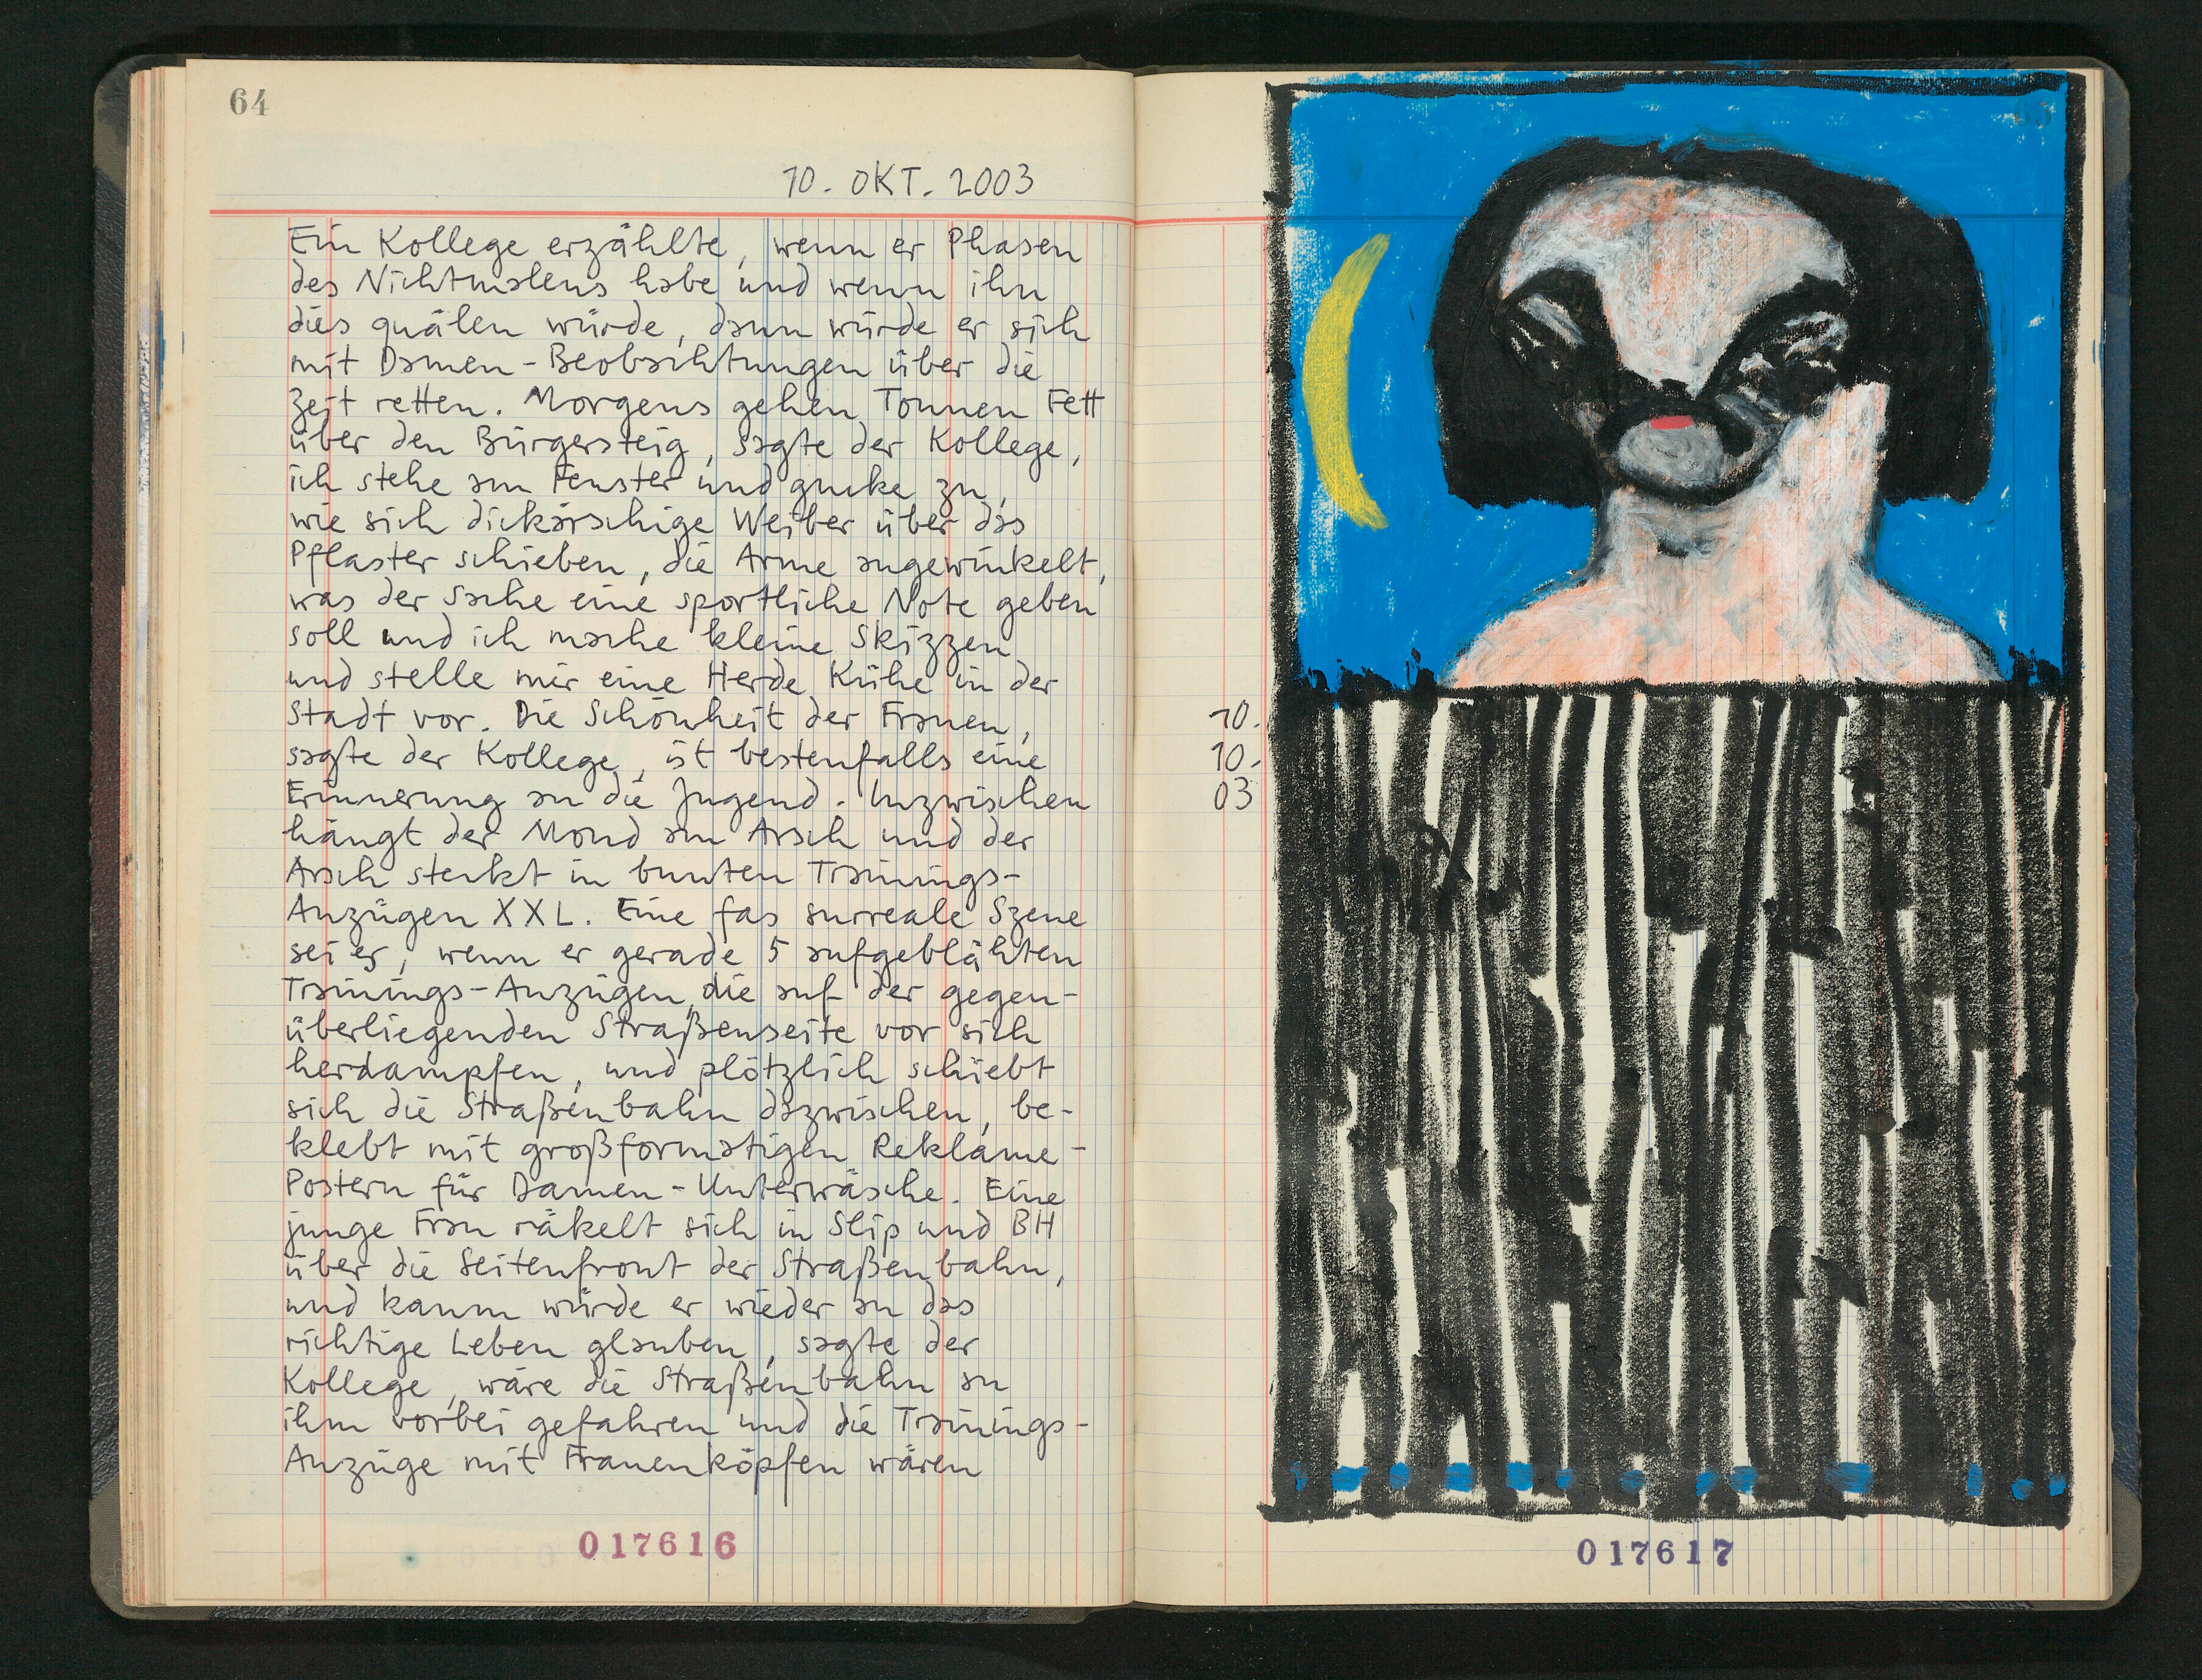 64
10. OKT. 2003
Ein Kollege erzählte, wenn er Phasen
des Nichtmalens habe und wenn ihn
dies quälen würde, dann würde er sich
mit Damen-Beobachtungen über die
Zeit retten. Morgens gehen Tonnen Fett
über den Bürgersteig, sagte der Kollege,
ich stehe am Fenster und gucke zu,
wie sich dickärschige Weiber über das
Pflaster schieben, die Arme angewinkelt,
was der Sache eine sportliche Note geben
soll und ich mache kleine Skizzen
und stelle mir eine Herde Kühe in der
Stadt vor. Die Schönheit der Frauen,
sagte der Kollege, ist bestenfalls eine
Erinnerung an die Jugend. Inzwischen
hängt der Mond am Arsch und der
Arsch steckt in bunten Trainings-
Anzügen XXL. Eine fas surreale Szene
sei es, wenn er gerade 5 aufgeblähten
Trainings-Anzügen, die auf der gegen-
überliegenden Straßenseite vor sich
herdampfen, und plötzlich schiebt
sich die Straßenbahn dazwischen, be-
klebt mit großformatigen Reklame-
Postern für Damen-Unterwäsche. Eine
junge Frau räkelt sich in Slip und BH
über die Seitenfront der Straßenbahn,
und kaum würde er wieder an das
richtige Leben glauben, sagte der
Kollege, wäre die Straßenbahn an
ihm vorbei gefahren und die Trainings-
Anzüge mit Frauenköpfen wären
017616
10.
10.
03
017617